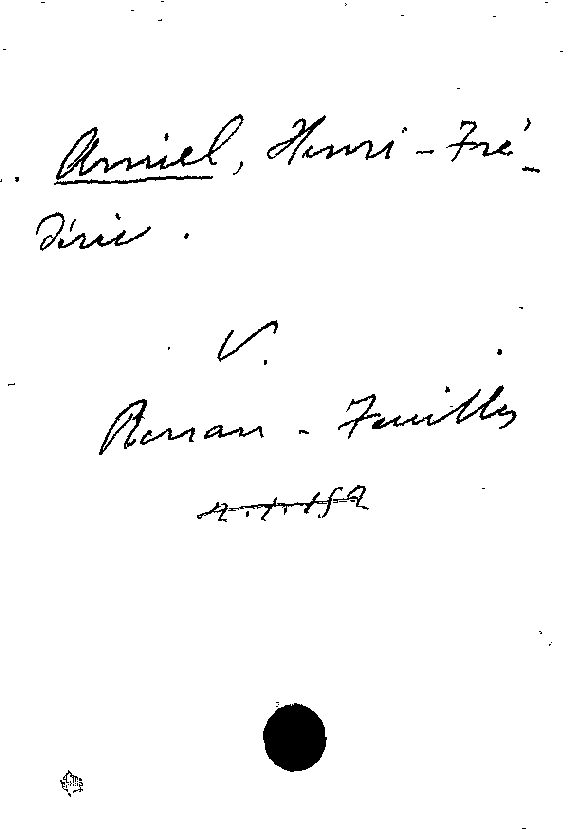 Amiel, Henri-Fré-
déric.
V.
Renan - Feuilles